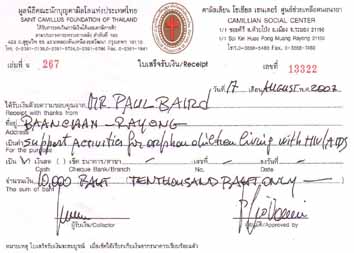 มูลนิธิคณะนักบุญคามิลโลแห่งประเทศไทย
SAINT CAMILLUS FOUNDATION OF THAILAND
คามิลเลียน โซเชียล เซนเตอร์
CAMILLIAN SOCIAL CENTER
1/1 Soi Kiir Huay Pong Muang Rayong 21150
เล่มที่ 267
ใบเสร็จรับเงิน/Receipt
เลขที่ No. 13322
วันที่ 17 เดือน AUGUST พ.ศ. 2007
ได้รับเงินด้วยความขอบคุณจาก MR. PAUL BAIRD
Receipt with thanks from
ที่อยู่ BAANCHAN - RAYONG
Address
เป็น support activities for orphan children living with HIV/AIDS
For the purpose
เป็น เงินสด เช็ค ธนาคาร/สาขา เลขที่ วันที่
Cash Cheque Bank/Branch No. Date
จำนวนเงิน 10,000 BAHT TEN THOUSAND BAHT ONLY
The sum of baht
ผู้รับเงิน/Collector
ผู้อนุมัติ/Approved by
หมายเหตุ ใบเสร็จรับเงินจะสมบูรณ์ เมื่อเช็คได้รับเรียกเก็บเงินจากธนาคารเรียบร้อยแล้ว